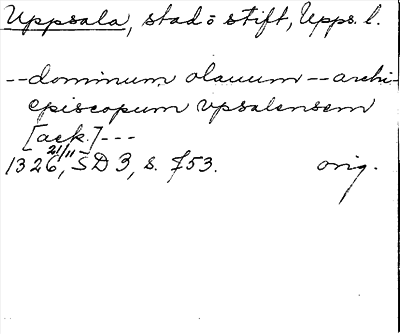 Uppsala, stad o stift, Upps. l.
-- dominum olauum -- archi-
episcopum vpsalensem
[ack.] ---
1326 21/11, SD 3, s. 753. orig.